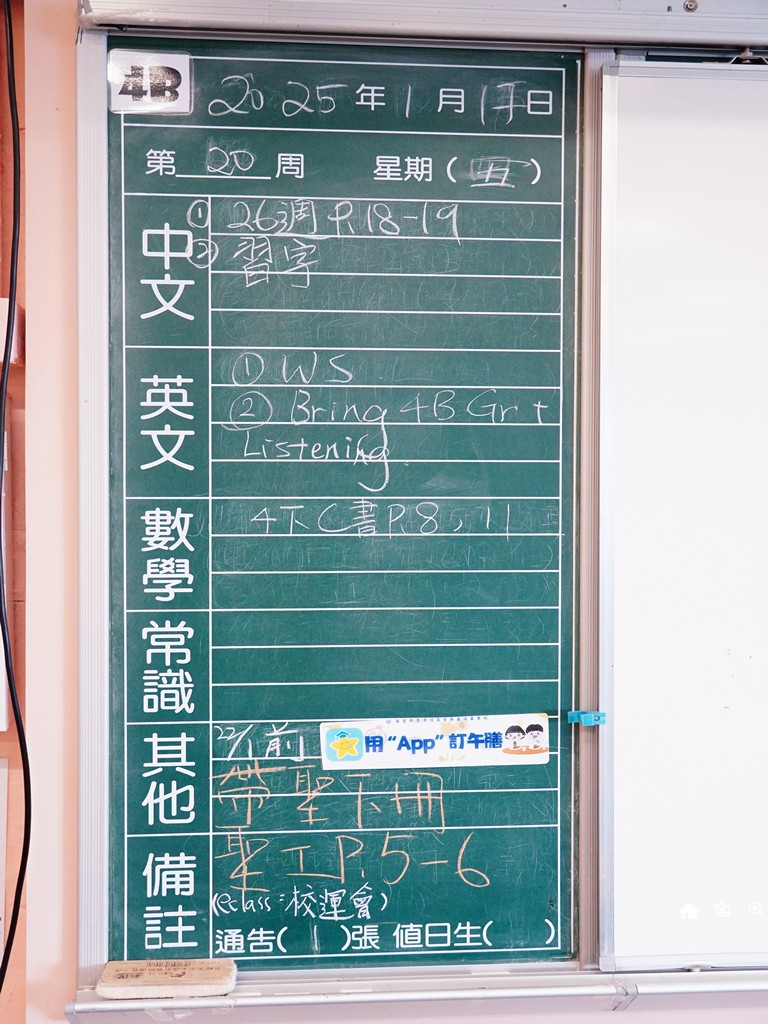 4B
2025年1月17日
第20周 星期(五)
中文
① 26週 P.18-19
② 習字
英文
① WS
② Bring 4B Gr +
Listening
數學
4下C書P.8, 11
常識
其他
22/1前 用“App”訂午膳
帶聖下冊
備註
聖工P.5-6
(eclass:校運會)
通告(1)張 值日生( )